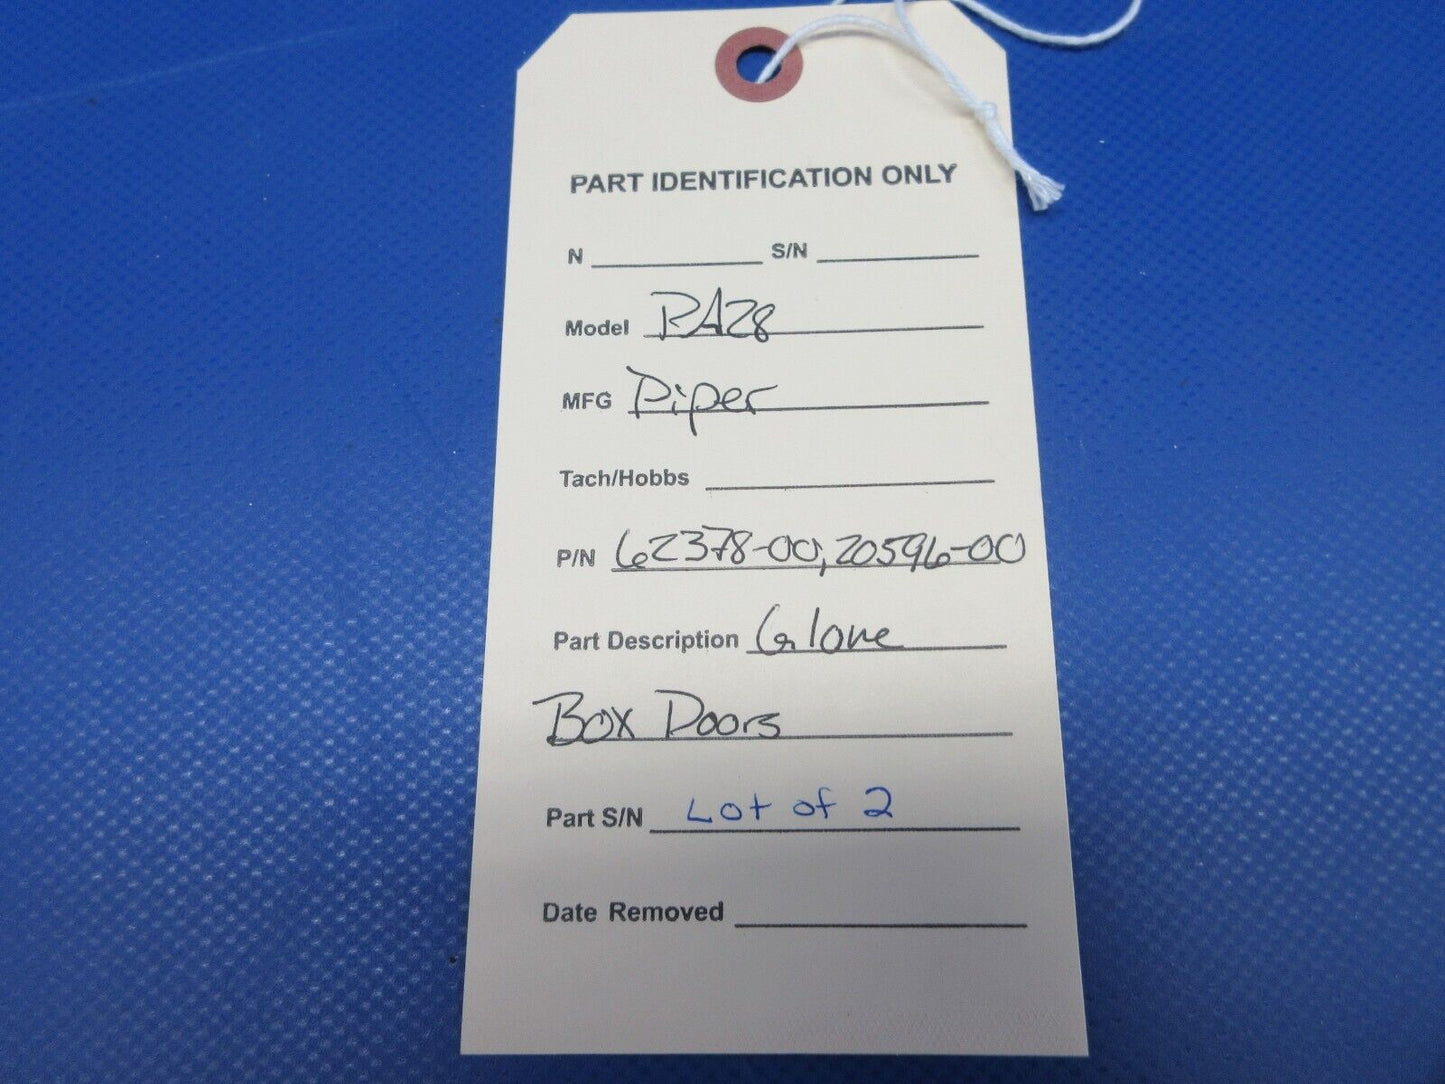 PART IDENTIFICATION ONLY
N S/N
Model PA28
MFG Piper
Tach/Hobbs
P/N 62378-00, 20596-00
Part Description Glove
Box Doors
Part S/N Lot of 2
Date Removed